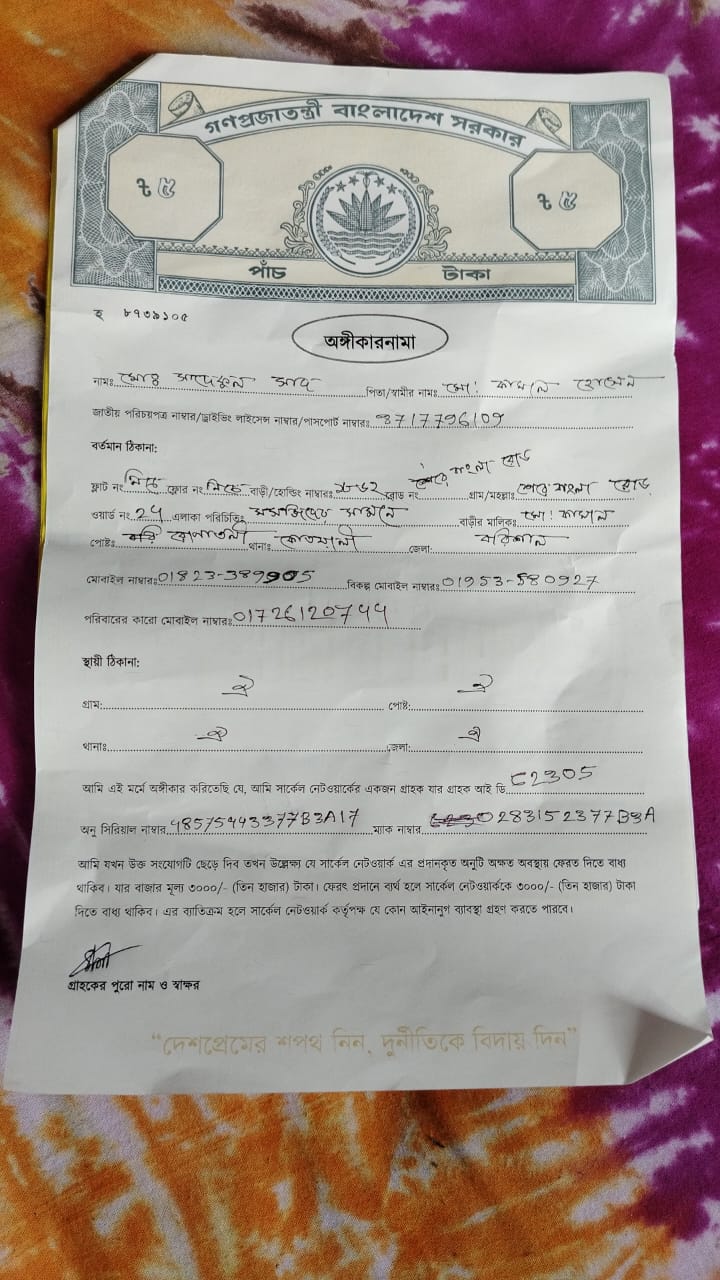 গণপ্রজাতন্ত্রী বাংলাদেশ সরকার
৳ ৫ ৳ ৫
পাঁচ টাকা
হ ৮৭৩৯১০৫
অঙ্গীকারনামা
নামঃ মোঃ সাদ পিতা/স্বামীর নামঃ মো: কামাল হোসেন
জাতীয় পরিচয়পত্র নাম্বার/ড্রাইভিং লাইসেন্স নাম্বার/পাসপোর্ট নাম্বারঃ 3717796109
বর্তমান ঠিকানা:
ফ্লাট নং নিচে ফ্লোর নং নিচে বাড়ী/হোল্ডিং নাম্বারঃ রোড নং শেরে বাংলা রোড গ্রাম/মহল্লাঃ শেরে বাংলা রোড
ওয়ার্ড নং 24 এলাকা পরিচিতিঃ মসজিদের সামনে বাড়ীর মালিকঃ মো: কামাল
পোষ্টঃ রূপাতলী থানাঃ কোতয়ালী জেলা: বরিশাল
মোবাইল নাম্বারঃ 01823-389905 বিকল্প মোবাইল নাম্বারঃ 01953-580927
পরিবারের কারো মোবাইল নাম্বারঃ 01726120744
স্থায়ী ঠিকানা:
গ্রাম: ঐ পোষ্ট: ঐ
থানাঃ ঐ জেলা: ঐ
আমি এই মর্মে অঙ্গীকার করিতেছি যে, আমি সার্কেল নেটওয়ার্কের একজন গ্রাহক যার গ্রাহক আই ডি C2305
অনু সিরিয়াল নাম্বার 48575443377B3A17 ম্যাক নাম্বার 0283152377B3A
আমি যখন উক্ত সংযোগটি ছেড়ে দিব তখন উল্লেক্ষ্য যে সার্কেল নেটওয়ার্ক এর প্রদানকৃত অনুটি অক্ষত অবস্থায় ফেরত দিতে বাধ্য
থাকিব। যার বাজার মূল্য ৩০০০/- (তিন হাজার) টাকা। ফেরৎ প্রদানে ব্যর্থ হলে সার্কেল নেটওয়ার্ককে ৩০০০/- (তিন হাজার) টাকা
দিতে বাধ্য থাকিব। এর ব্যতিক্রম হলে সার্কেল নেটওয়ার্ক কর্তৃপক্ষ যে কোন আইনানুগ ব্যাবস্থা গ্রহণ করতে পারবে।
গ্রাহকের পুরো নাম ও স্বাক্ষর
“দেশপ্রেমের শপথ নিন, দুর্নীতিকে বিদায় দিন”